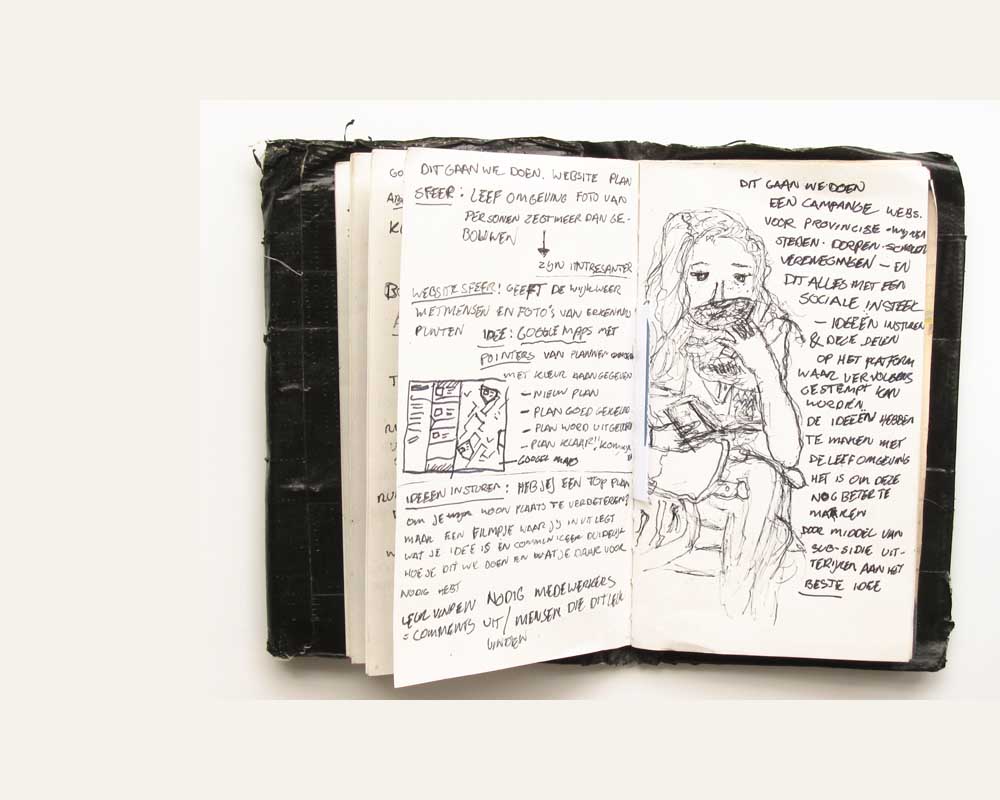 DIT GAAN WE DOEN. WEBSITE PLAN
SFEER: LEEF OMGEVING FOTO VAN
PERSONEN ZEGT MEER DAN GE-
BOUWEN
ZIJN INTRESANTER
WEBSITE SFEER! GEEFT DE WIJK WEER
MET MENSEN EN FOTO'S VAN ERKENNU
PUNTEN IDEE: GOOGLE MAPS MET
POINTERS VAN PLANNEN
MET KLEUR AANGEGEVEN
- NIEUW PLAN
- PLAN GOED GEKEURD
- PLAN WORD UITGEVOERD
- PLAN KLAAR!!
GOOGLE MAPS
IDEEEN INSTUREN: HEB JIJ EEN TOP PLAN
OM JE WOON PLAATS TE VERBETEREN?
MAAK EEN FILMPJE WAAR JIJ IN UIT LEGT
WAT JE IDEE IS EN COMMUNICEER DUIDELIJK
HOE JE DIT WIL DOEN EN WAT JE DAAR VOOR
NODIG HEBT
LEUK VINDEN NODIG MEDEWERKERS
= COMMENTS UIT/ MENSEN DIE DIT LEUK
VINDEN
GO
K
T
DIT GAAN WE DOEN
EEN CAMPANGE WEBS.
VOOR PROVINCISE - WIJKEN
STEDEN - DORPEN -
VERENEGINGEN - EN
DIT ALLES MET EEN
SOCIALE INSTEEK
- IDEEËN INSTUREN
& DEZE DELEN
OP HET PLATFORM
WAAR VERVOLGENS
GESTEMPT KAN
WORDEN
DE IDEEËN HEBBEN
TE MAKEN MET
DE LEEFOMGEVING
HET IS OM DEZE
NOG BETER TE
MAKEN
DOOR MIDDEL VAN
SUB-SIDIE UIT-
TERIJKEN AAN HET
BESTE IDEE